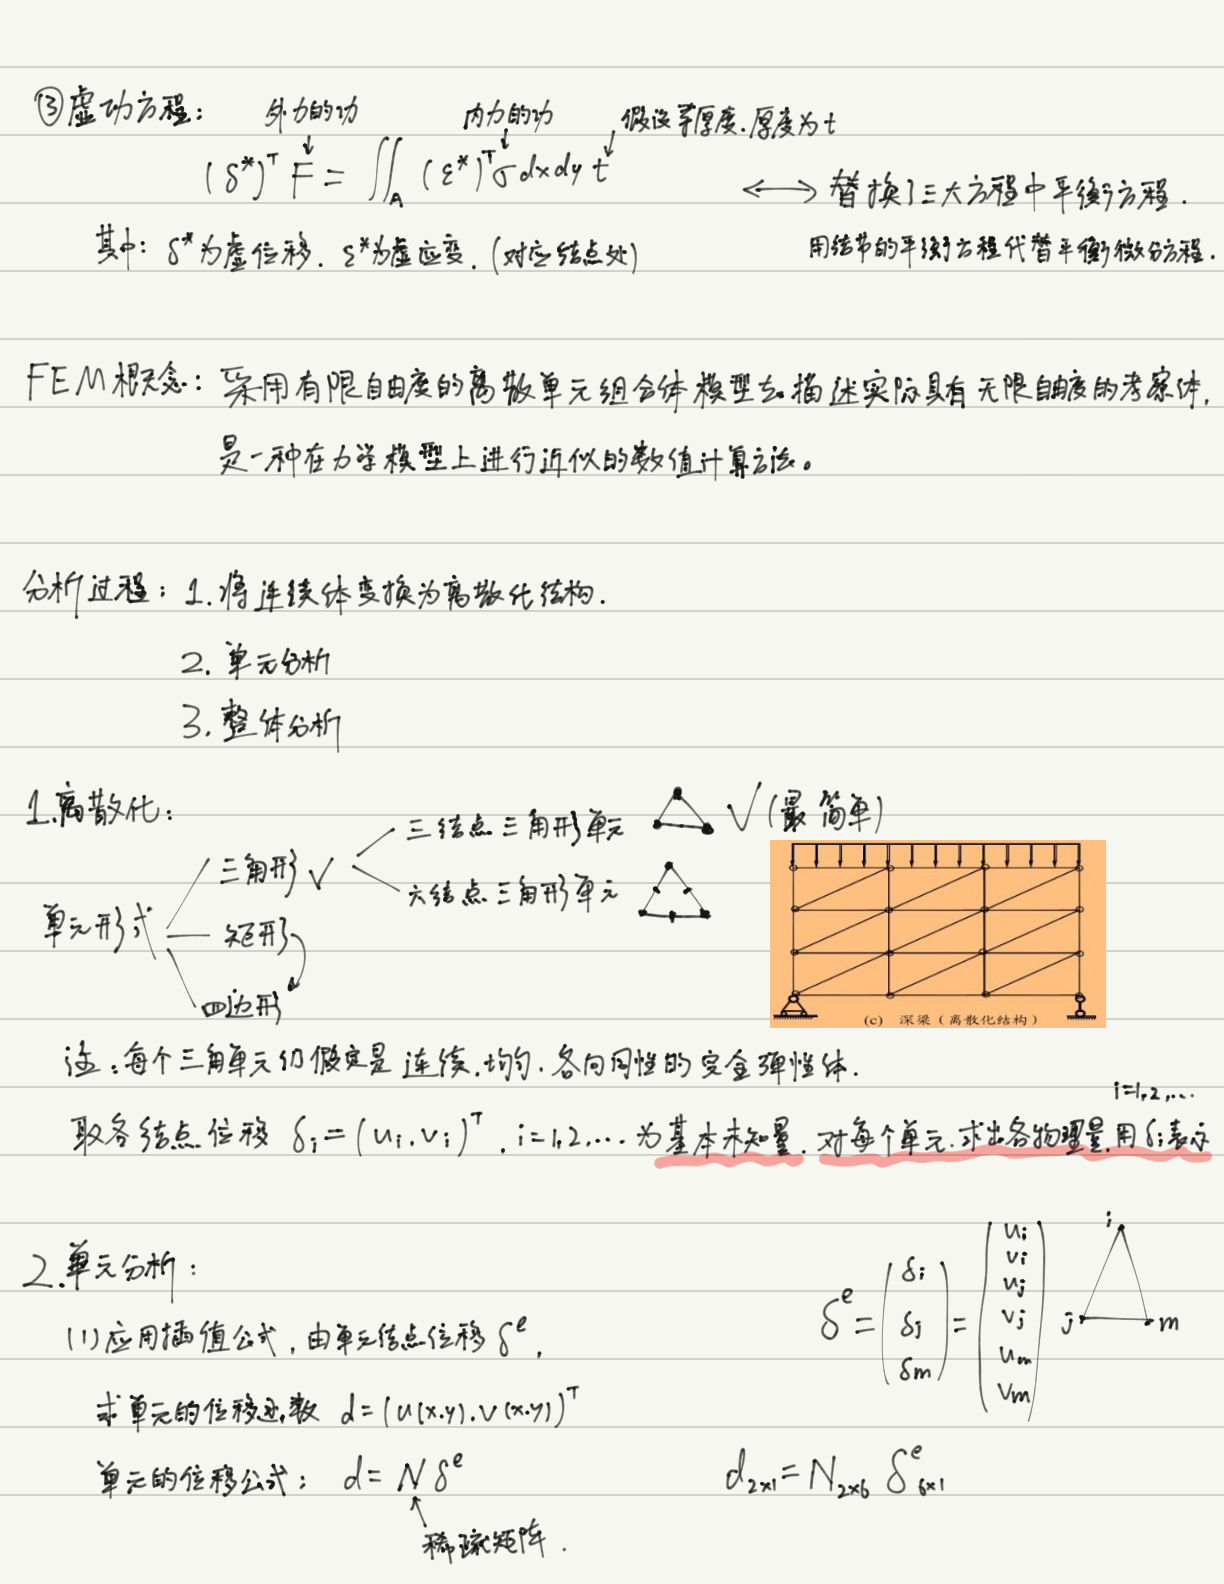 ③虚功方程: 外力的功 内力的功 假设等厚度.厚度为t
(δ*)ᵀ F = ∬_A (ε*)ᵀ σ dx dy t ⟷ 替换了三大方程中平衡方程.
其中: δ*为虚位移. ε*为虚应变.(对应结点处) 用结节的平衡方程代替平衡微分方程.
FEM概念: 采用有限自由度的离散单元组合体模型去描述实际具有无限自由度的考察体,
是一种在力学模型上进行近似的数值计算方法。
分析过程: 1.将连续体变换为离散化结构.
2.单元分析
3.整体分析
1.离散化:
三结点三角形单元 √(最简单)
三角形√
六结点三角形单元
单元形式
矩形
四边形
(c) 深梁(离散化结构)
注:每个三角单元仍假定是连续.均匀.各向同性的完全弹性体.
i=1,2,...
取各结点位移 δi=(ui.vi)ᵀ. i=1,2,... 为基本未知量. 对每个单元.求出各物理量.用δi表示
2.单元分析:
δᵉ = (δi δj δm) = (ui vi uj vj um vm) i j m
(1)应用插值公式, 由单元结点位移 δᵉ,
求单元的位移函数 d=(u(x.y).v(x.y))ᵀ
单元的位移公式: d=Nδᵉ d₂ₓ₁=N₂ₓ₆ δᵉ₆ₓ₁
稀疏矩阵.